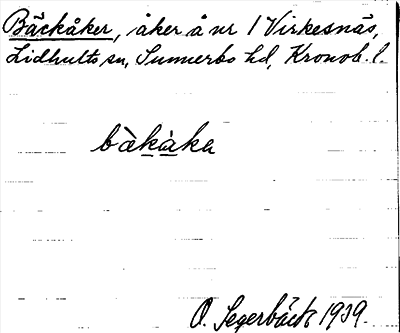 Bäckåker, åker å nr 1 Virkesnäs,
Lidhults sn, Sunnerbo hd, Kronob. l.
bàkàka
O. Segerbäck 1939.